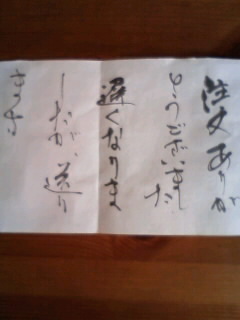 注文ありが
とうございました
遅くなりま
したが、送り
ます